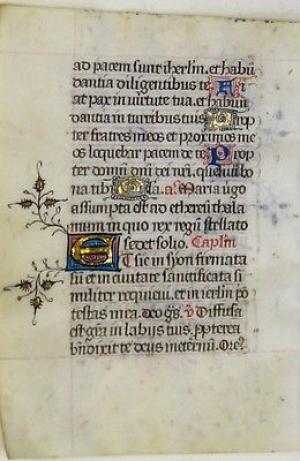 ad pacem sunt iherlin. et habũ
dantia diligentibus te. Fi
at pax in virtute tua. et habun
dantia in turribus tuis. Prop
ter fratres meos et proximos me
os loquebar pacem de te. Prop
ter domũ dñi dei nr̃i. quesivi bo
na tibi. Gl̃a. añ. Maria virgo
assumpta est ad ethereũ thala
mum in quo rex regũ stellato
sedet solio. Caplm̃
Et sic in syon firmata
sũ et in civitate sanctificata si
militer requievi. et in ierlm̃ po
testas mea. deo grãs. v̄ Diffusa
est grã in labijs tuis. ꝓpterea
bñdixit te deus in eternũ. Or̃e?